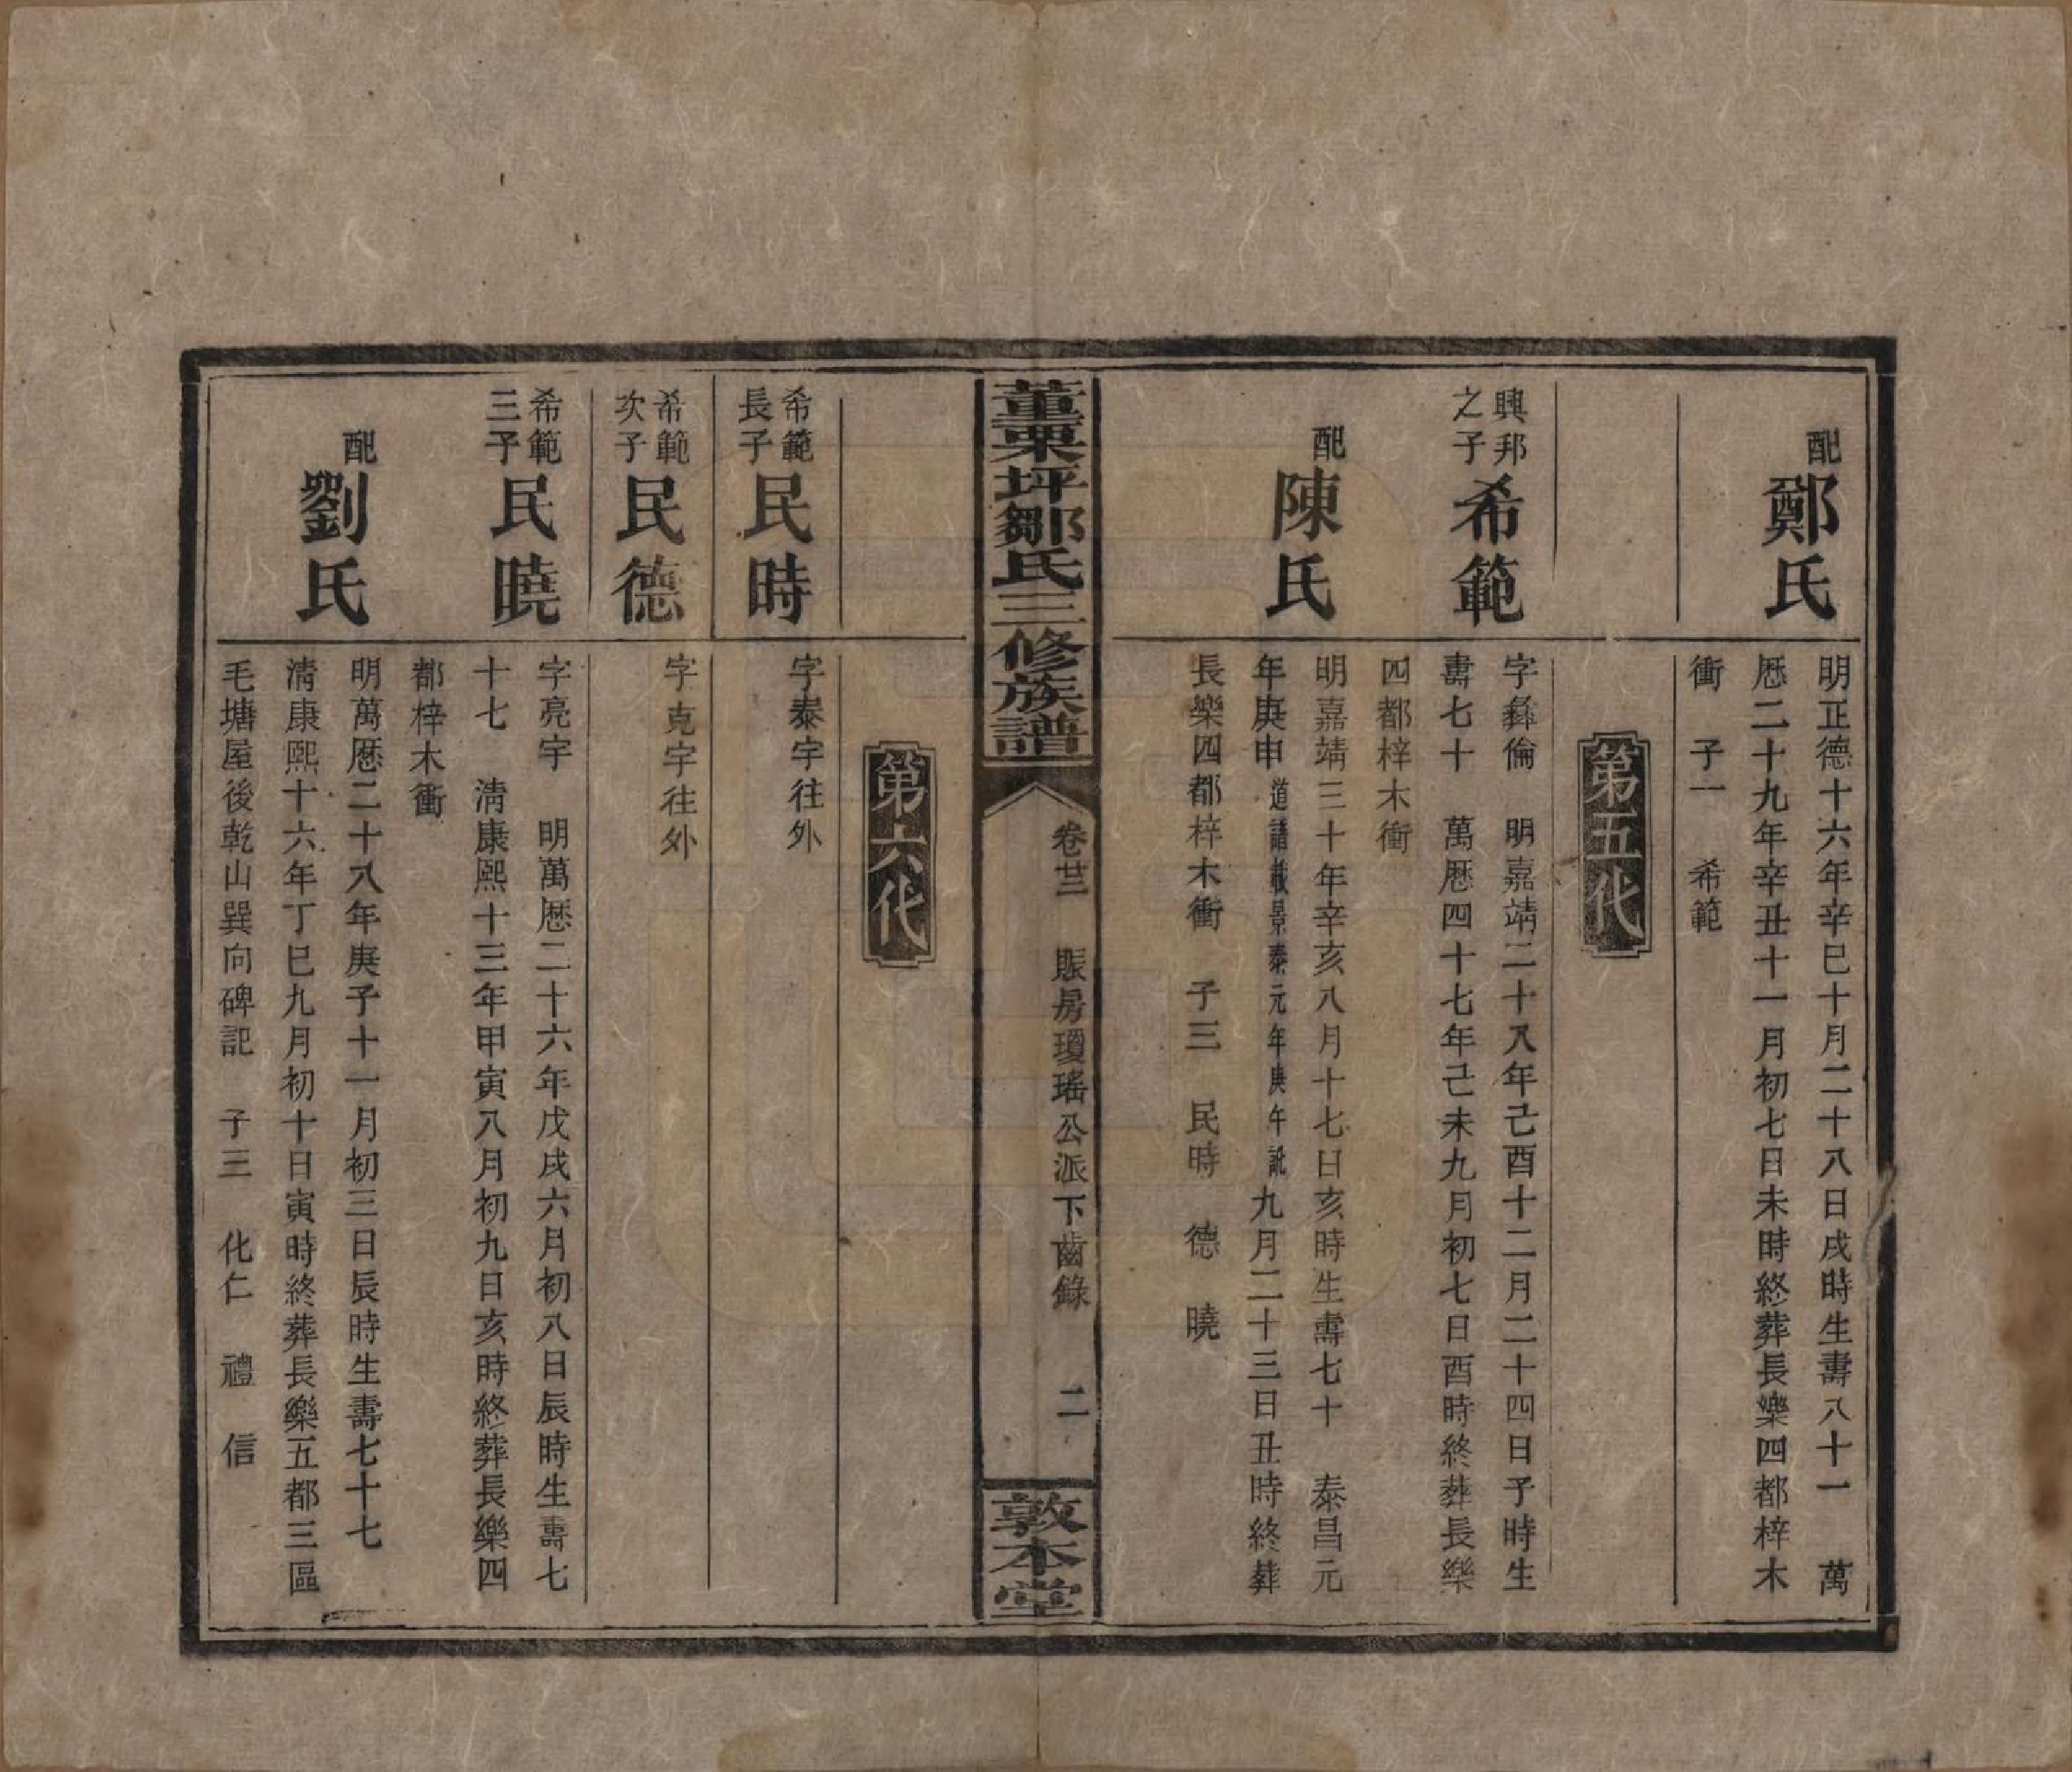 配
鄭氏
明正德十六年辛巳十月二十八日戌時生壽八十一　萬
厯二十九年辛丑十一月初七日未時終葬長樂四都梓木
衝　子一　希範
第五代
興邦
之子
希範
字彝倫　明嘉靖二十八年己酉十二月二十四日子時生
壽七十　萬厯四十七年己未九月初七日酉時終葬長樂
四都梓木衝
配
陳氏
明嘉靖三十年辛亥八月十七日亥時生壽七十　泰昌元
年庚申道譜載景泰元年庚午訛九月二十三日丑時終葬
長樂四都梓木衝　子三　民時　德　曉
董栗坪鄒氏三修族譜
卷廿三　賬房瓊瑤公派下齒錄　二
敦本堂
第六代
希範
長子
民時
字泰宇往外
希範
次子
民德
字克宇往外
希範
三子
民曉
字亮宇　明萬厯二十六年戊戌六月初八日辰時生壽七
十七　淸康熙十三年甲寅八月初九日亥時終葬長樂四
都梓木衝
配
劉氏
明萬厯二十八年庚子十一月初三日辰時生壽七十七
淸康熙十六年丁巳九月初十日寅時終葬長樂五都三區
毛塘屋後乾山巽向碑記　子三　化仁　禮　信